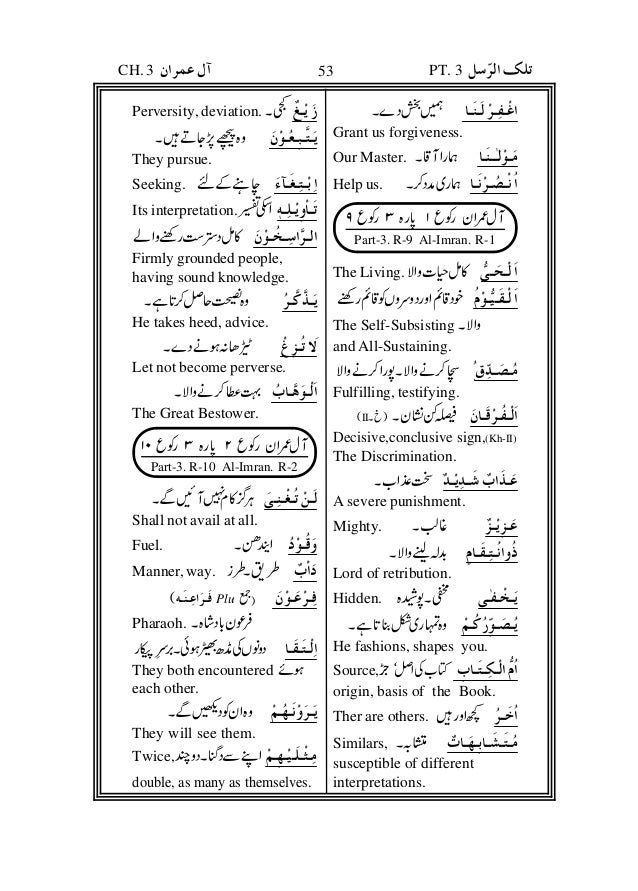 CH. 3 آل عمران
53
PT. 3 تلک الرّسل
اغْفِرْ لَنَا ہمیں بخش دے۔
Grant us forgiveness.
Our Master. ہمارا آقا۔ مَوْلٰنَا
Help us. ہماری مدد کر۔ اُنْصُرْنَا
آل عمران رکوع ۱ پارہ ۳ رکوع ۹
Part-3. R-9 Al-Imran. R-1
The Living. کامل حیات والا اَلْحَیُّ
اَلْقَیُّوْمُ خود قائم اور دوسروں کو قائم رکھنے
The Self-Subsisting والا۔
and All-Sustaining.
مُصَدِّقٌ سچا کرنے والا۔ پورا کرنے والا
Fulfilling, testifying.
اَلْفُرْقَانَ فیصلہ کن نشان۔ (خ۔II)
Decisive,conclusive sign,(Kh-II)
The Discrimination.
عَذَابٌ شَدِیْدٌ سخت عذاب۔
A severe punishment.
Mighty. غالب۔ عَزِیْزٌ
ذُوانْتِقَامٍ بدلہ لینے والا۔
Lord of retribution.
Hidden. مخفی۔ پوشیدہ یَخْفٰی
یُصَوِّرُکُمْ وہ تمہاری شکل بناتا ہے۔
He fashions, shapes you.
Source, کتاب کی اصل، جڑ اُمُّ الْکِتَابِ
origin, basis of the Book.
Ther are others. کچھ اور ہیں اُخَرُ
Similars, متشابہ۔ مُتَشَابِهَاتٌ
susceptible of different
interpretations.
Perversity, deviation. کجی۔ زَیْغٌ
یَتَّبِعُوْنَ وہ پیچھے پڑ جاتے ہیں۔
They pursue.
Seeking. چاہنے کے لئے اِبْتِغَآءَ
Its interpretation. اسکی تفسیر تَاْوِیْلِهٖ
الرَّاسِخُوْنَ کامل دسترس رکھنے والے
Firmly grounded people,
having sound knowledge.
یَذَّکَّرُ وہ نصیحت حاصل کرتا ہے۔
He takes heed, advice.
لَا تُزِغْ ٹیڑھا نہ ہونے دے۔
Let not become perverse.
اَلْوَهَّابُ بہت عطا کرنے والا۔
The Great Bestower.
آل عمران رکوع ۲ پارہ ۳ رکوع ۱۰
Part-3. R-10 Al-Imran. R-2
لَنْ تُغْنِیَ ہرگز کام نہیں آئیں گے۔
Shall not avail at all.
Fuel. ایندھن۔ وَقُوْدُ
Manner, way. طریق۔ طرز دَاْبٌ
فِرْعَوْنَ (جمع Plu فَرَاعِنَه)
Pharaoh. فرعون بادشاہ۔
اِلْتَقَا دونوں کی مڈھ بھیڑ ہوئی۔ برسرِ پیکار
They both encountered ہوئے
each other.
یَرَوْنَهُمْ وہ ان کو دیکھیں گے۔
They will see them.
Twice, اپنے سے دگنا۔ دو چند مِثْلَیْهِمْ
double, as many as themselves.